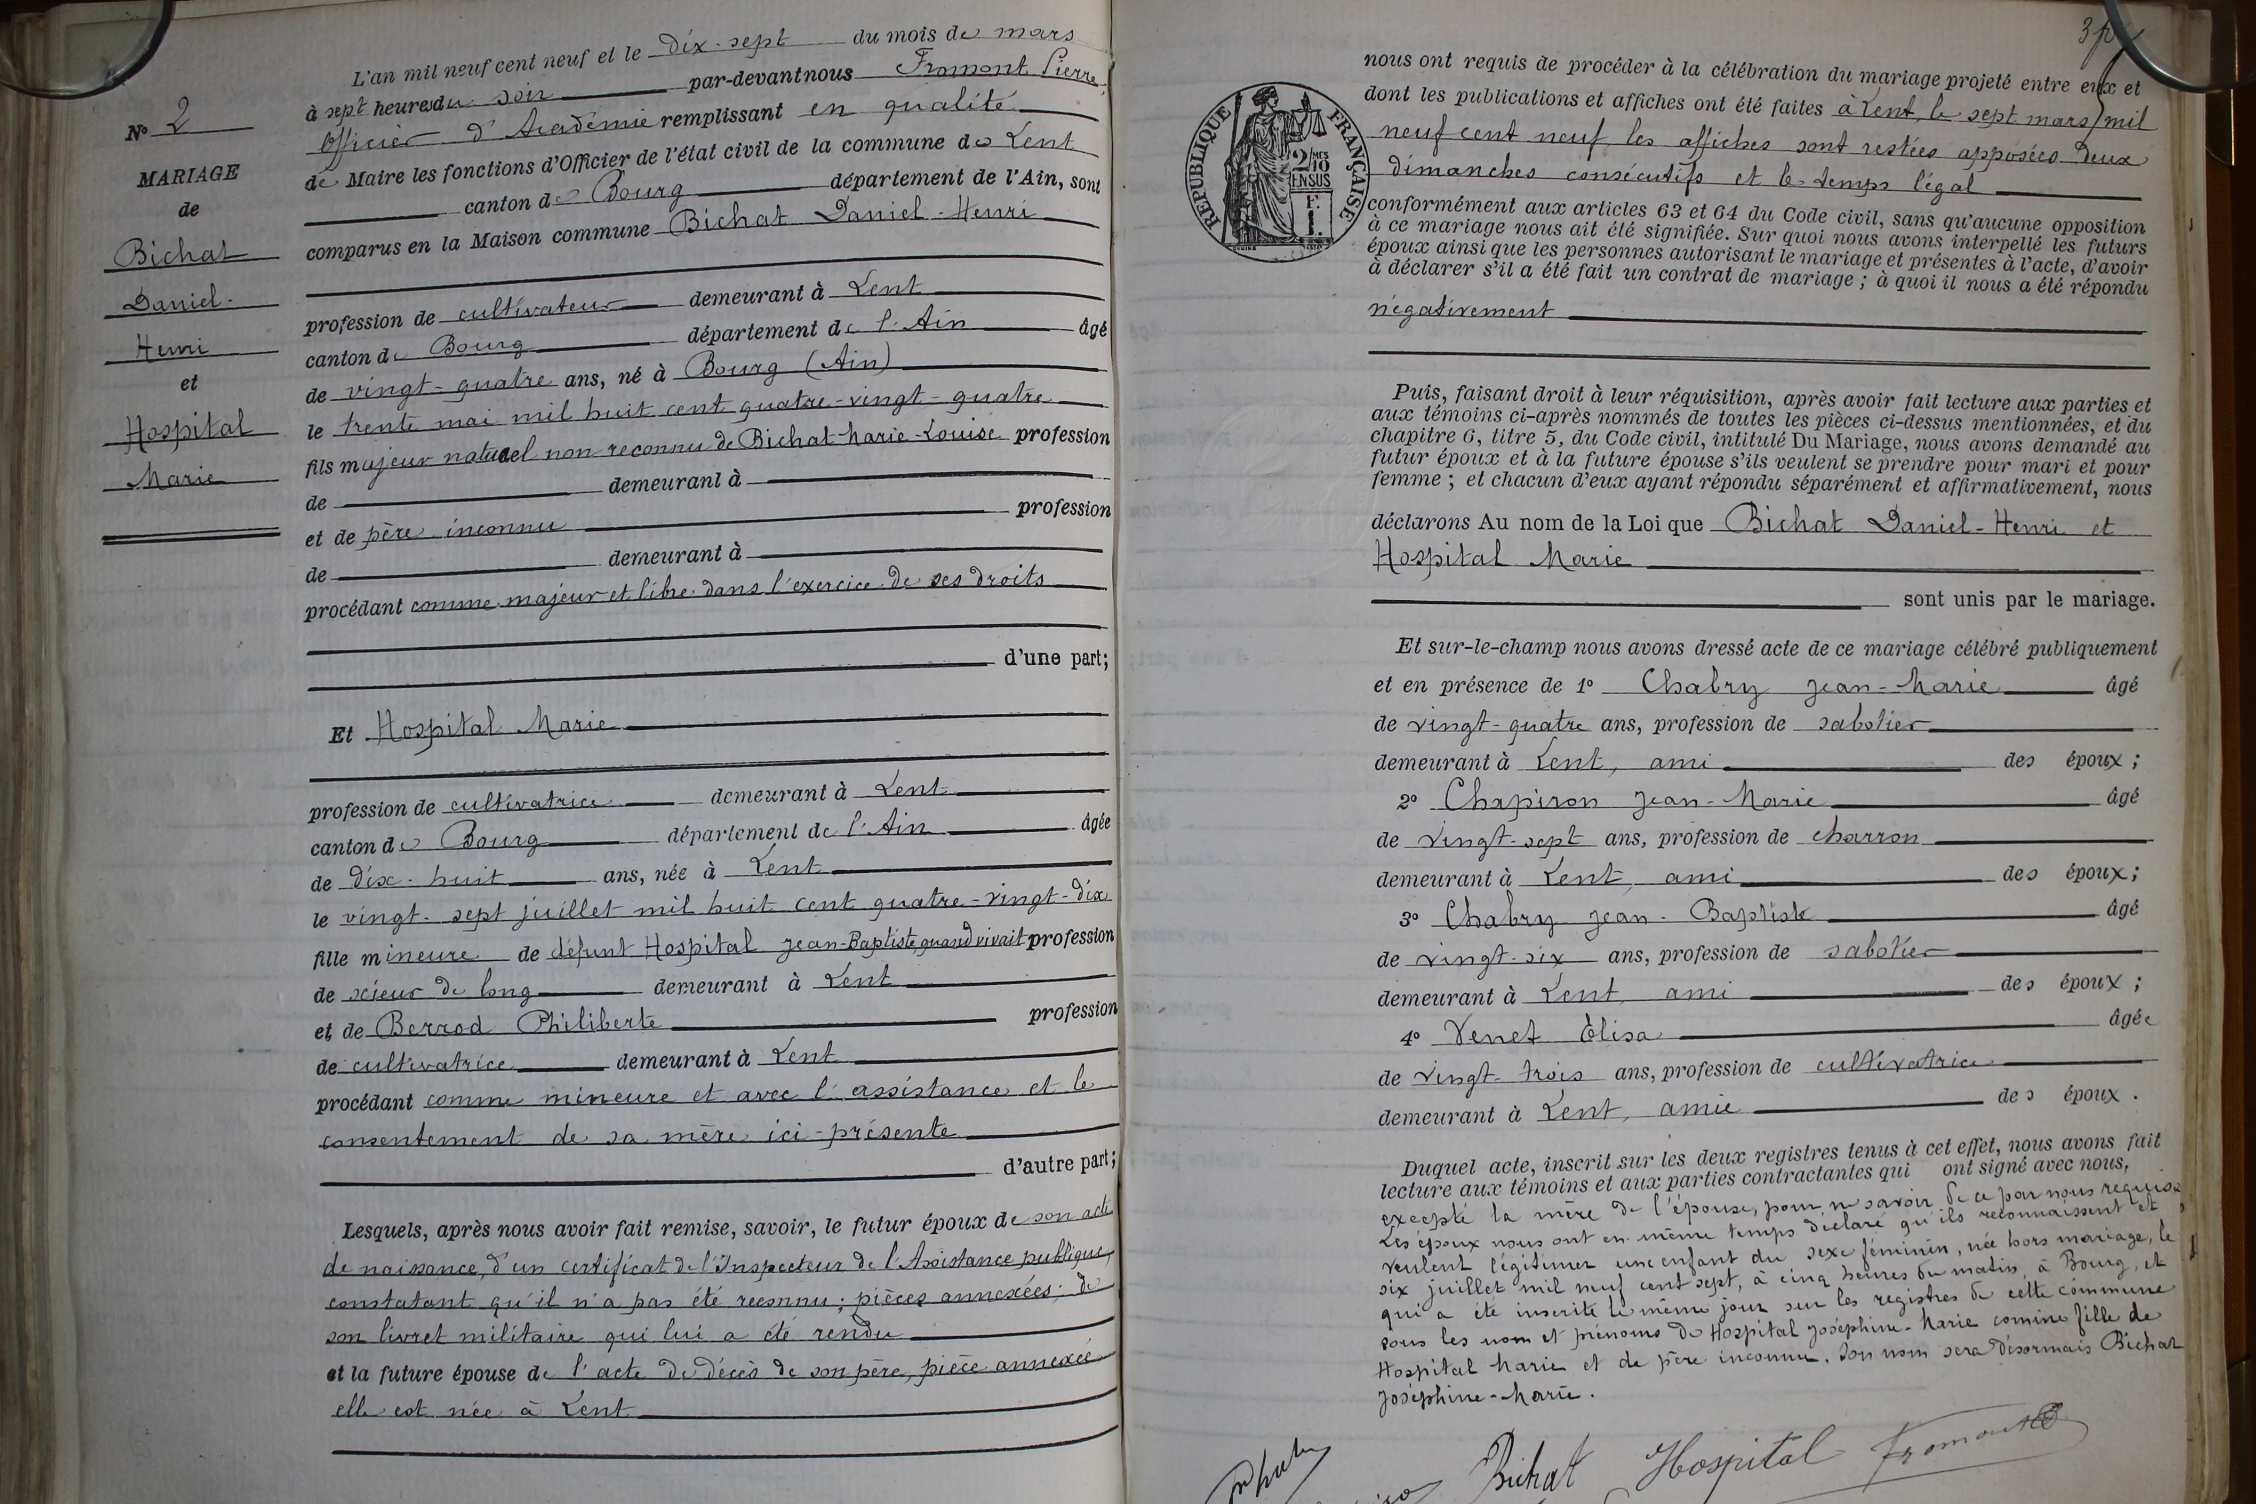 L'an mil neuf cent neuf et le dix-sept du mois de mars
à sept heures du soir par-devant nous Fromont Pierre,
Officier d'Académie remplissant en qualité
de Maire les fonctions d'Officier de l'état civil de la commune de Lent
canton de Bourg département de l'Ain, sont
comparus en la Maison commune Bichat Daniel-Henri
profession de cultivateur demeurant à Lent
canton de Bourg département de l'Ain âgé
de vingt-quatre ans, né à Bourg (Ain)
le trente mai mil huit cent quatre-vingt-quatre
fils majeur naturel non reconnu de Bichat Marie-Louise profession
de demeurant à
et de père inconnu profession
de demeurant à
procédant comme majeur et libre dans l'exercice de ses droits
d'une part;
Et Hospital Marie
profession de cultivatrice demeurant à Lent
canton de Bourg département de l'Ain âgée
de dix-huit ans, née à Lent
le vingt-sept juillet mil huit cent quatre-vingt-dix
fille mineure de défunt Hospital Jean-Baptiste, quand vivait profession
de scieur de long demeurant à Lent
et de Berrod Philiberte profession
de cultivatrice demeurant à Lent
procédant comme mineure et avec l'assistance et le
consentement de sa mère ici-présente
d'autre part;
Lesquels, après nous avoir fait remise, savoir, le futur époux de son acte
de naissance, d'un certificat de l'Inspecteur de l'Assistance publique,
constatant qu'il n'a pas été reconnu; pièces annexées; de
son livret militaire qui lui a été rendu
et la future épouse de l'acte de décès de son père, pièce annexée
elle est née à Lent
No 2
MARIAGE
de
Bichat
Daniel-
Henri
et
Hospital
Marie
RÉPUBLIQUE FRANÇAISE
2/10
EN SUS
F.
1.
nous ont requis de procéder à la célébration du mariage projeté entre eux et
dont les publications et affiches ont été faites à Lent, le sept mars mil
neuf cent neuf, les affiches sont restées apposées deux
dimanches consécutifs et le temps légal
conformément aux articles 63 et 64 du Code civil, sans qu'aucune opposition
à ce mariage nous ait été signifiée. Sur quoi nous avons interpellé les futurs
époux ainsi que les personnes autorisant le mariage et présentes à l'acte, d'avoir
à déclarer s'il a été fait un contrat de mariage; à quoi il nous a été répondu
négativement
Puis, faisant droit à leur réquisition, après avoir fait lecture aux parties et
aux témoins ci-après nommés de toutes les pièces ci-dessus mentionnées, et du
chapitre 6, titre 5, du Code civil, intitulé Du Mariage, nous avons demandé au
futur époux et à la future épouse s'ils veulent se prendre pour mari et pour
femme; et chacun d'eux ayant répondu séparément et affirmativement, nous
déclarons Au nom de la Loi que Bichat Daniel-Henri et
Hospital Marie
sont unis par le mariage.
Et sur-le-champ nous avons dressé acte de ce mariage célébré publiquement
et en présence de 1º Chabry Jean-Marie âgé
de vingt-quatre ans, profession de sabotier
demeurant à Lent, ami des époux;
2º Chapiron Jean-Marie âgé
de vingt-sept ans, profession de charron
demeurant à Lent, ami des époux;
3º Chabry Jean-Baptiste âgé
de vingt-six ans, profession de sabotier
demeurant à Lent, ami des époux;
4º Venet Élisa âgée
de vingt-trois ans, profession de cultivatrice
demeurant à Lent, amie des époux.
Duquel acte, inscrit sur les deux registres tenus à cet effet, nous avons fait
lecture aux témoins et aux parties contractantes qui ont signé avec nous,
excepté la mère de l'épouse, pour ne savoir de ce par nous requise
Les époux nous ont en même temps déclaré qu'ils reconnaissent et
veulent légitimer une enfant du sexe féminin, née hors mariage, le
six juillet mil neuf cent sept, à cinq heures du matin, à Bourg, et
qui a été inscrite le même jour sur les registres de cette commune
sous les nom et prénoms de Hospital Joséphine-Marie comme fille de
Hospital Marie et de père inconnu. Son nom sera désormais Bichat
Joséphine-Marie.
Bichat Hospital Fromont